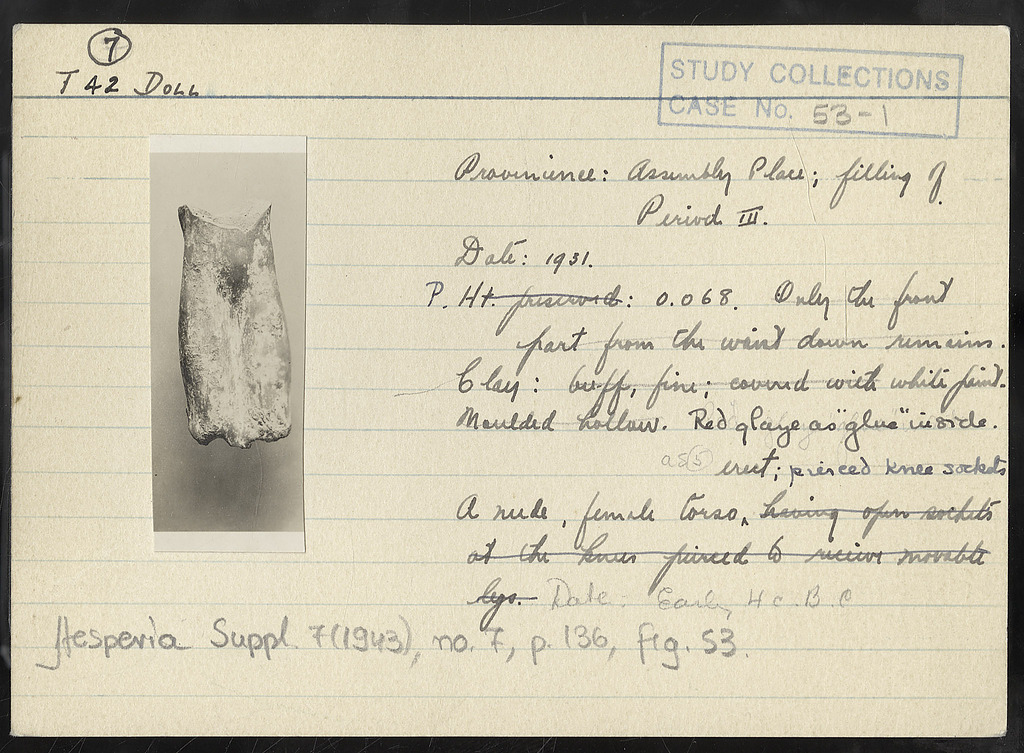 7
T 42 Doll
STUDY COLLECTIONS
CASE No. 53-1
Provinience: Assembly Place; filling of
Period III.
Date: 1931.
P. Ht. preserved: 0.068. Only the front
part from the waist down remains.
Clay: buff, fine; covered with white paint.
Moulded hollow. Red glaze as "glue" inside.
as 5 erect; pierced knee sockets
A nude, female torso, having open sockets
at the knees pierced to receive movable
legs. Date: Early 4 c. B.C
Hesperia Suppl. 7(1943), no. 7, p. 136, fig. 53.